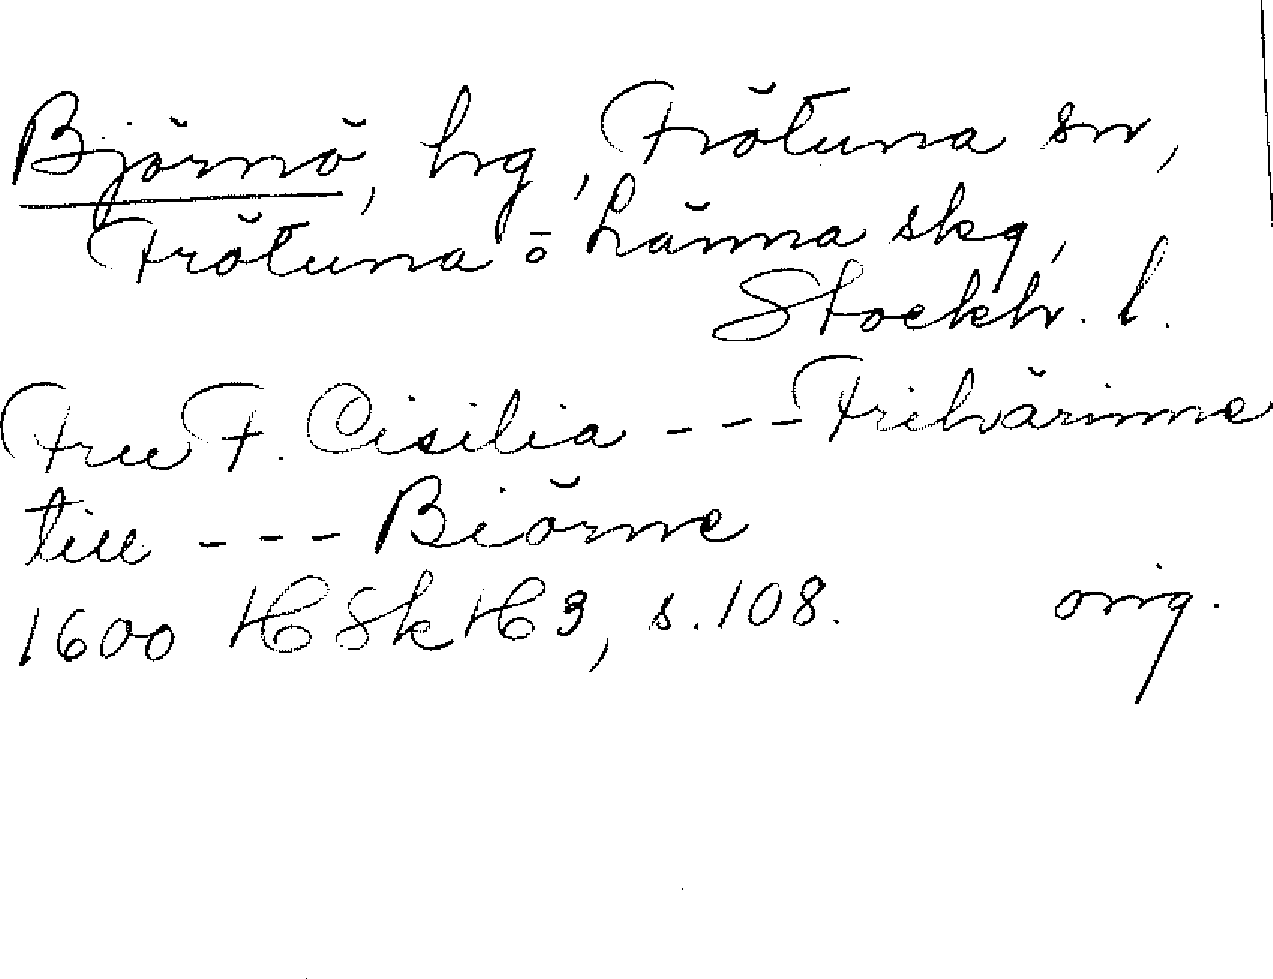 Björnö, hg, Frötuna sn,
Frötuna o Länna skg,
Stockh. l.
Fru F. Cisilia --- Frihärinne
till --- Biörne
1600 HSkH 3, s. 108. orig.